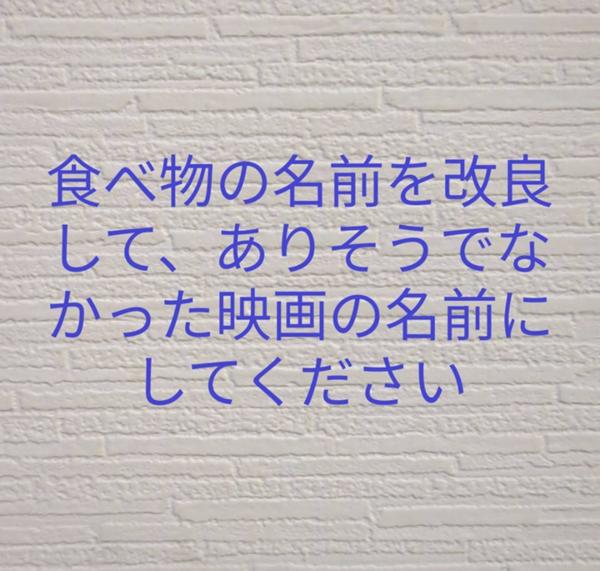 食べ物の名前を改良
して、ありそうでな
かった映画の名前に
してください